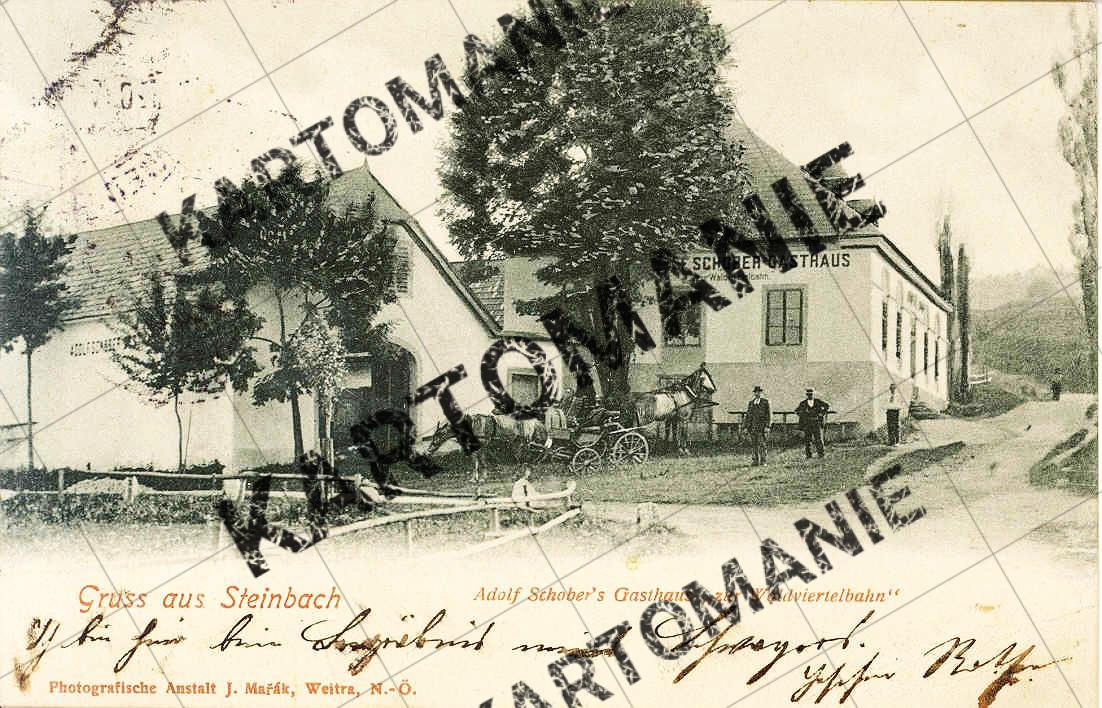 KARTOMANIE
KARTOMANIE
SCHOBER GASTHAUS
ADOLF SCHOBER
KARTOMANIE
KARTOMANIE
Gruss aus Steinbach
Adolf Schober's Gasthaus „zur Waldviertelbahn“
Ich bin hier beim Begräbnis meines Schwagers.
Photografische Anstalt J. Mařák, Weitra, N.-Ö.
KARTOMANIE